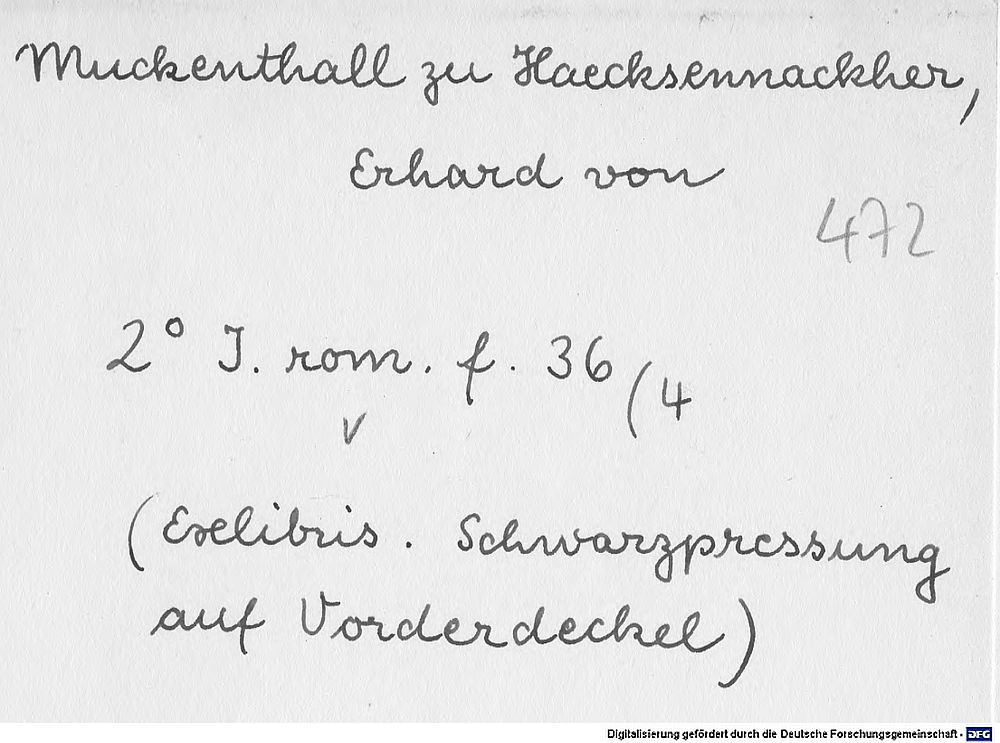 Muckenthall zu Haecksennackher,
Erhard von
472
2° J. rom. f. 36/4
v
(Exlibris. Schwarzpressung
auf Vorderdeckel)
Digitalisierung gefördert durch die Deutsche Forschungsgemeinschaft - DFG